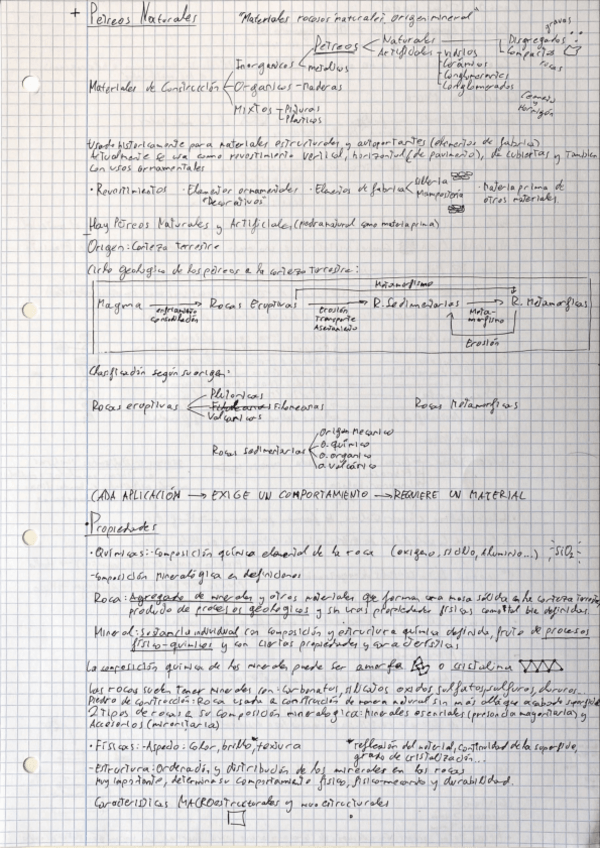 + Pétreos Naturales "Materiales rocosos naturales, origen mineral"
gravas
Pétreos Naturales Disgregados
Artificiales Compactos
rocas
Vidrios
Cerámicos
Conglomerantes
Conglomerados
Cemento y Hormigón
Inorganicos
metálicos
Materiales de Construcción Organicos - Maderas
Mixtos Pinturas
Plasticos
Usado historicamente para materiales estructurales y autoportantes (elementos de fabrica)
Actualmente se usa como revestimiento vertical, horizontal (de pavimento), de cubiertas y Tambien
con usos ornamentales
· Revestimientos · Elementos ornamentales · Elementos de fabrica Sillería · Materia prima de
"Decorativos" Mampostería otros materiales
Hay Pétreos Naturales y Artificiales (piedra natural como materia prima)
Origen: Corteza Terrestre
Ciclo geologico de los pétreos a la corteza terrestre:
Metamorfismo
Magma → Rocas Eruptivas → R. Sedimentarias → R. Metamorficas
enfriamiento
consolidación
Erosión
Transporte
Metamorfismo
Erosión
Clasificación según su origen:
Rocas eruptivas Plutonicas
Filoneanas
Volcanicas
Rocas Metamorficas
Rocas sedimentarias Origen Mecanico
O. químico
O. organico
O. volcánico
CADA APLICACIÓN → EXIGE UN COMPORTAMIENTO → REQUIERE UN MATERIAL
· Propiedades
· Químicas: - Composición química elemental de la roca (oxigeno, silicio, aluminio...) SiO₂
- Composición mineralógica en definiciones
Roca: Agregado de minerales y otros materiales que forman una masa sólida en la corteza terrestre,
producto de procesos geologicos y sin unas propiedades físicas como tal bien definidas.
Mineral: Sustancia individual con composición y estructura química definida, fruto de procesos
físico-químicos y con ciertas propiedades y características
La composición química de los minerales puede ser amorfa o cristalina
Las rocas suelen tener minerales con: carbonatos, silicatos oxidos sulfatos, sulfuros, cloruros...
Piedra de construcción: Roca usada a construcción de manera natural sin más allá que acabado superficial
2 tipos de rocas a su composición mineralogica: Minerales esenciales (presencia mayoritaria) y
Accesorios (minoritaria)
· Físicas: - Aspecto: Color, brillo*, textura *reflexión del material, continuidad de la superficie,
grado de cristalización...
- Estructura: Ordenación y distribución de los minerales en las rocas
Muy importante, determina su comportamiento físico, físico-mecanico y durabilidad.
Características MACROestructurales y microestructurales